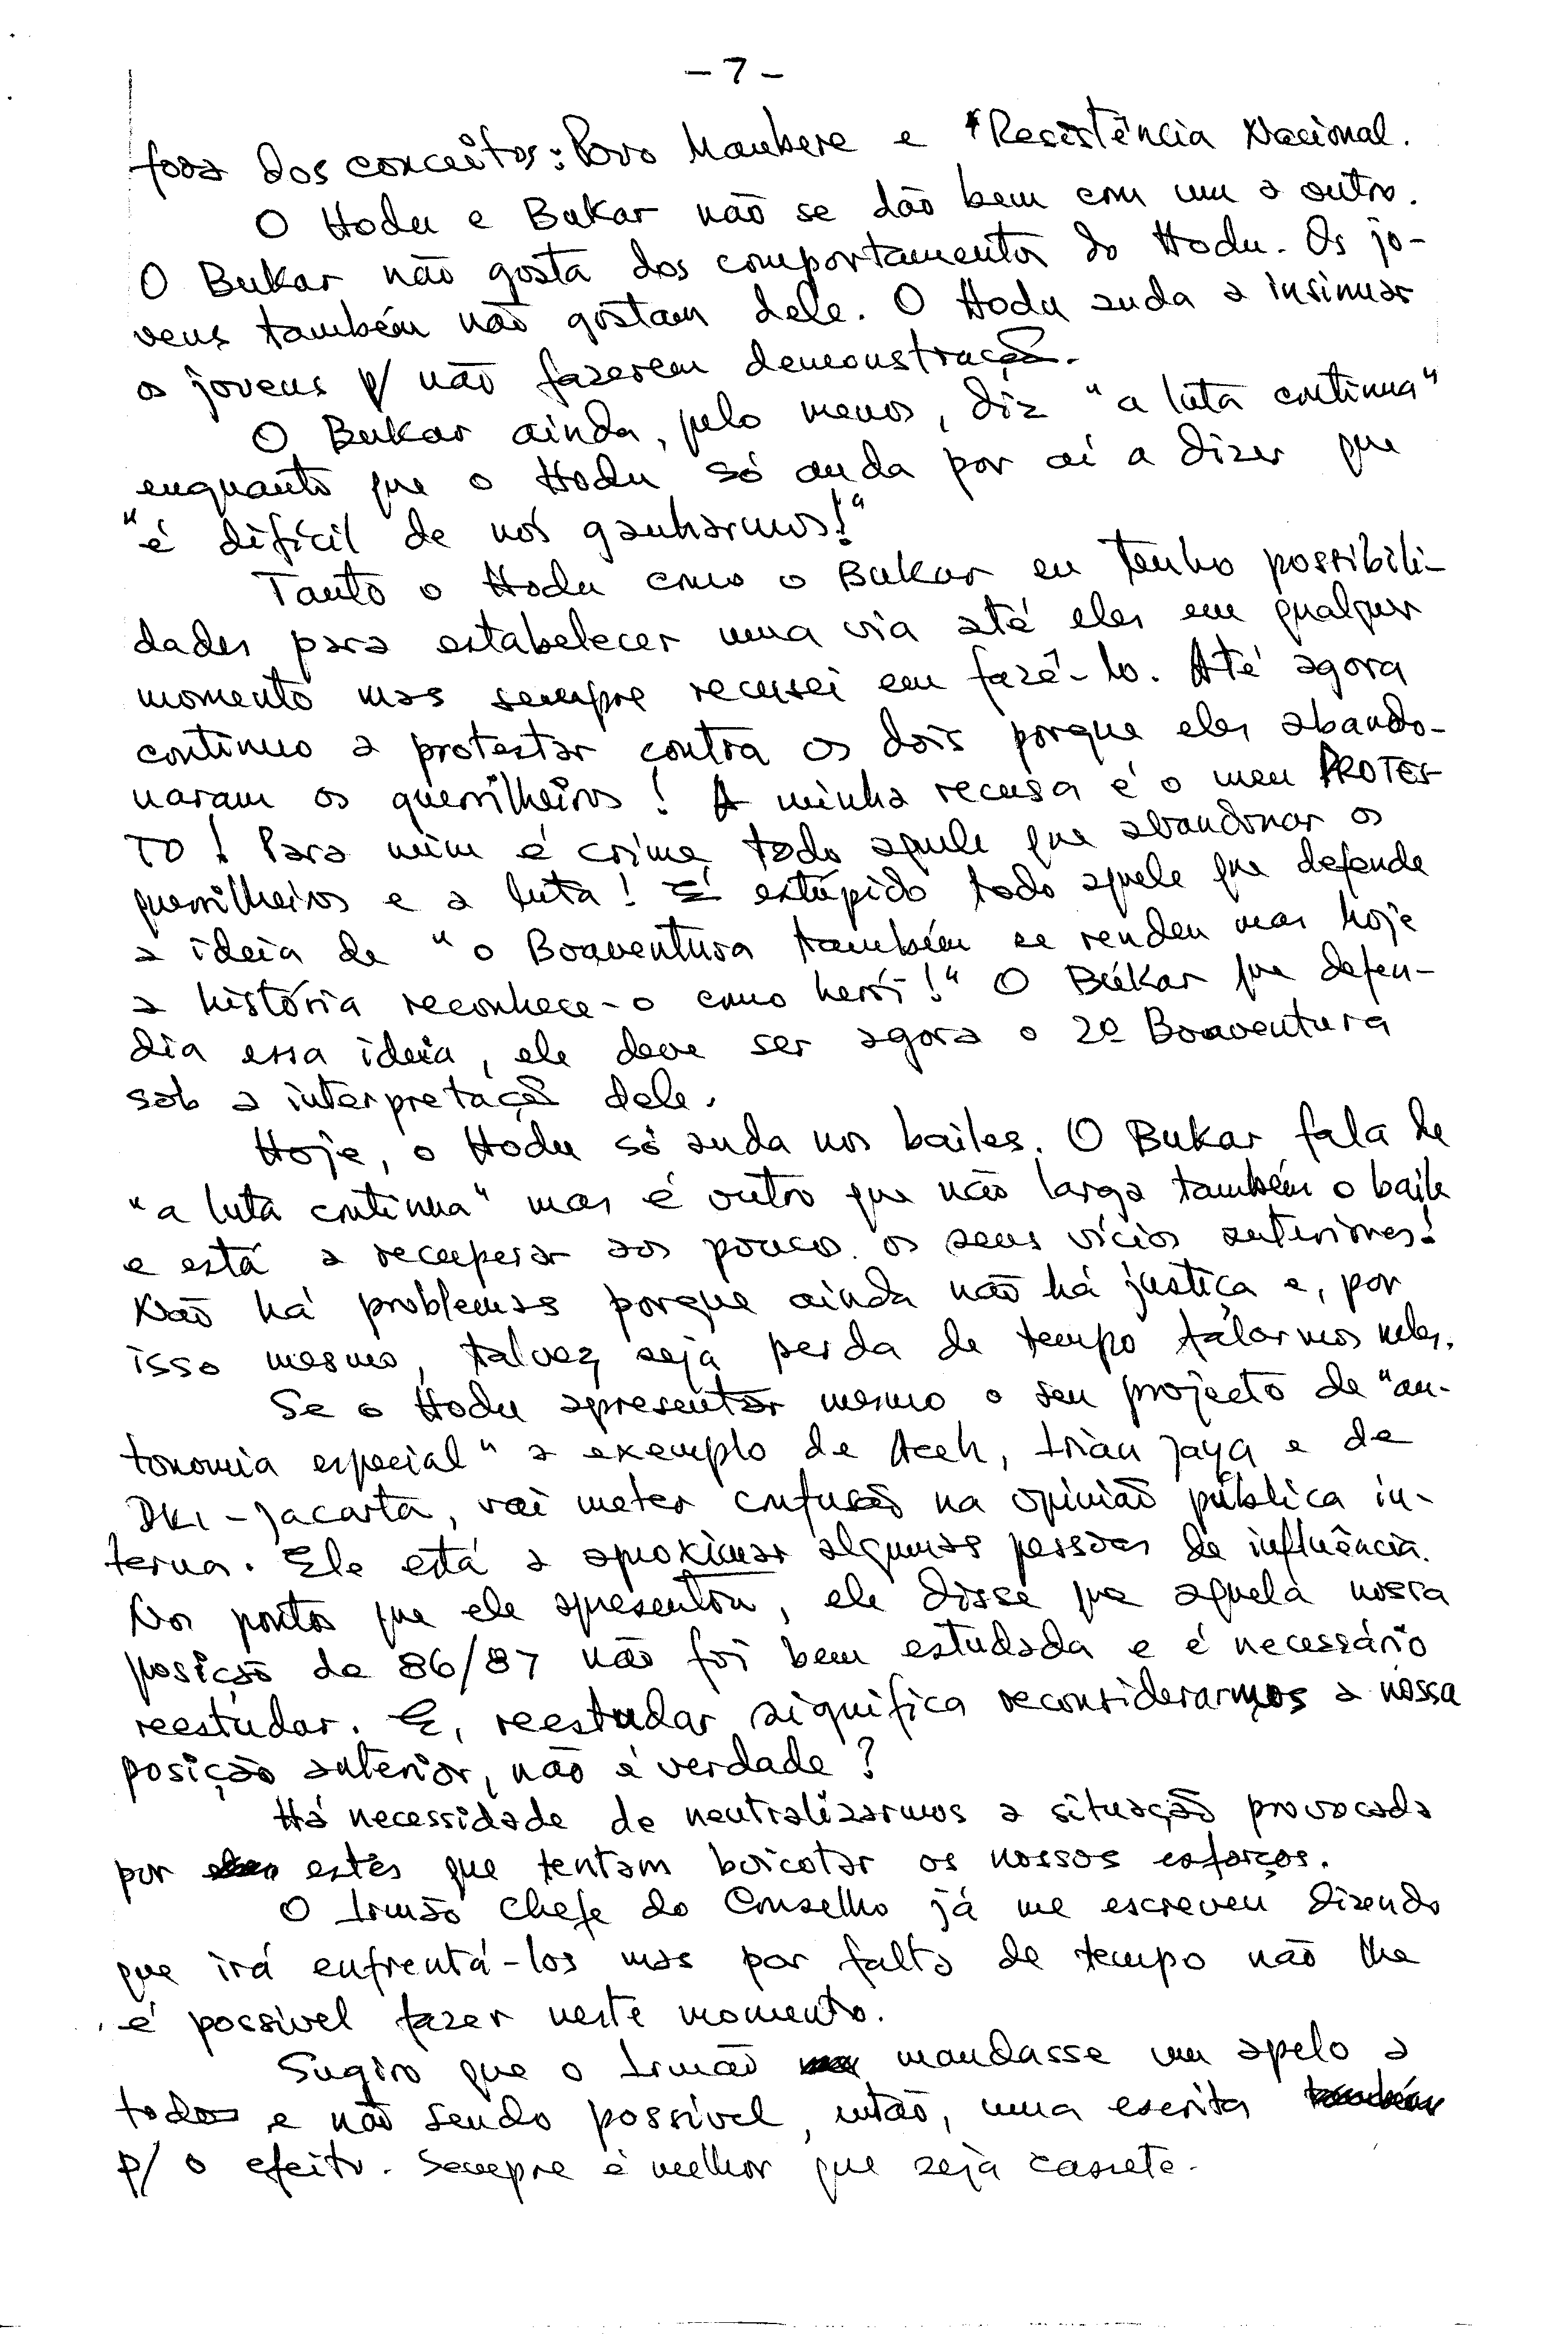 - 7 -
fora dos conceitos: Povo Maubere e Resistência Nacional.
O Hodu e Bukar não se dão bem com um a outro.
O Bukar não gosta dos comportamentos do Hodu. Os jo-
vens também não gostam dele. O Hodu anda a insinuar
os jovens p/ não fazerem demonstração.
O Bukar ainda, pelo menos, diz "a luta continua"
enquanto que o Hodu só anda por aí a dizer que
"é difícil de nós ganharmos!"
Tanto o Hodu como o Bukar eu tenho possibili-
dades para estabelecer uma via até eles em qualquer
momento mas sempre recusei em fazê-lo. Até agora
continuo a protestar contra os dois porque eles abando-
naram os guerrilheiros! A minha recusa é o meu PROTES
TO! Para mim é crime todo aquele que abandonar os
guerrilheiros e a luta! É estúpido todo aquele que defende
a ideia de "o Boaventura também se rendeu mas hoje
a história reconhece-o como herói!" O Búkar que defen-
dia essa ideia, ele deve ser agora o 2º Boaventura
sob a interpretação dele.
Hoje, o Hodu só anda nos bailes. O Bukar fala de
"a luta continua" mas é outro que não larga também o baile
e está a recuperar aos poucos os seus vícios anteriores!
Não há problemas porque ainda não há justiça e, por
isso mesmo, talvez seja perda de tempo falarmos neles.
Se o Hodu apresentar mesmo o seu projecto de "au-
tonomia especial" a exemplo de Aceh, Irian Jaya e de
DKI - Jacarta, vai meter confusão na opinião pública in-
terna. Ele está a aproximar algumas pessoas de influência.
Nos pontos que ele apresentou, ele disse que aquela nossa
posição de 86/87 não foi bem estudada e é necessário
reestudar. E, reestudar significa reconsiderarmos a nossa
posição anterior, não é verdade?
Há necessidade de neutralizarmos a situação provocada
por estes que tentam boicotar os nossos esforços.
O Irmão Chefe do Conselho já me escreveu dizendo
que irá enfrentá-los mas por falta de tempo não lhe
é possível fazer neste momento.
Sugiro que o Irmão mandasse um apelo a
todos e não sendo possível, então, uma escrita
p/ o efeito. Sempre é melhor que seja cassete.